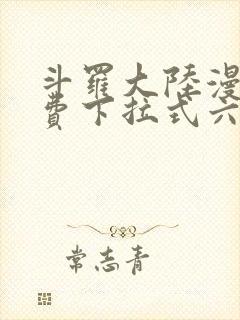 斗羅大陸漫
費下拉式六
常志青